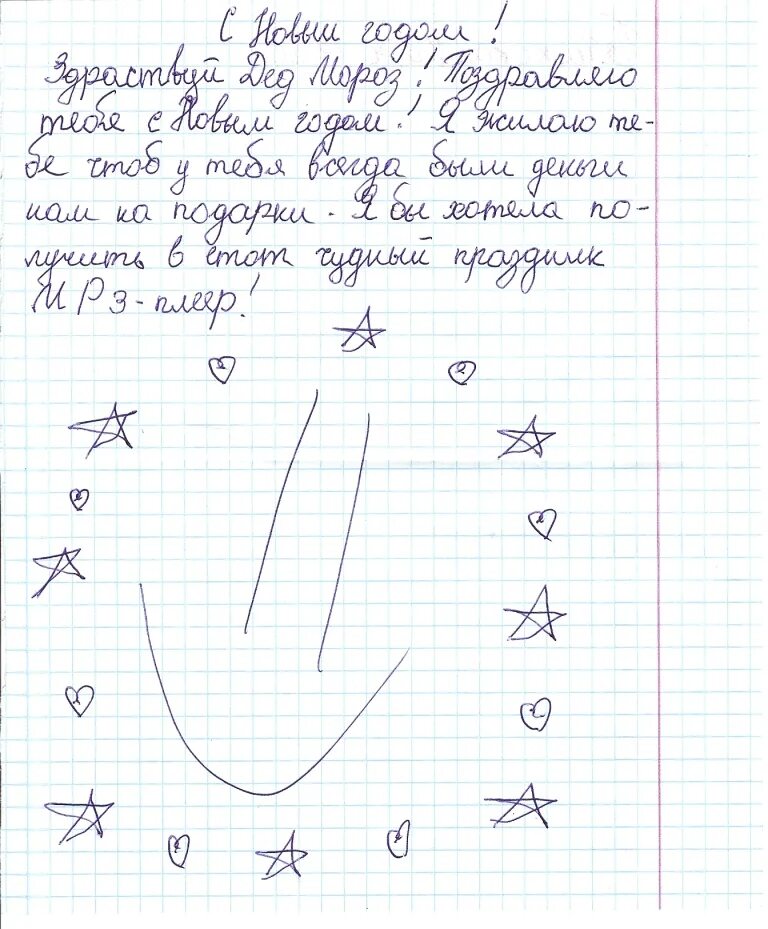 С Новым годом!
Здраствуй Дед Мороз! Поздравляю
тебя с Новым годом! Я жилаю те-
бе чтоб у тебя всегда были деньги
нам на подарки. Я бы хотела по-
лучить в етот чудный праздник
МР3-плеер!